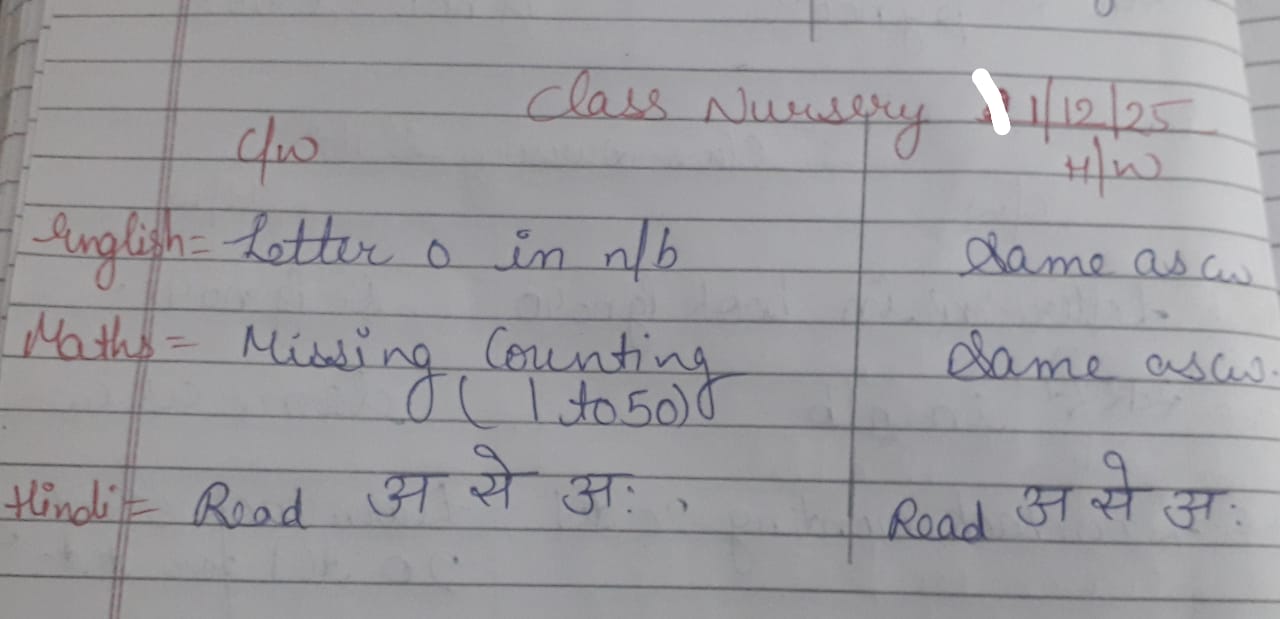 Class Nursery 1/12/25
C/W H/W
English = Letter o in n/b Same as cw
Maths = Missing Counting Same as cw.
(1 to 50)
Hindi = Read अ से अः . Read अ से अः